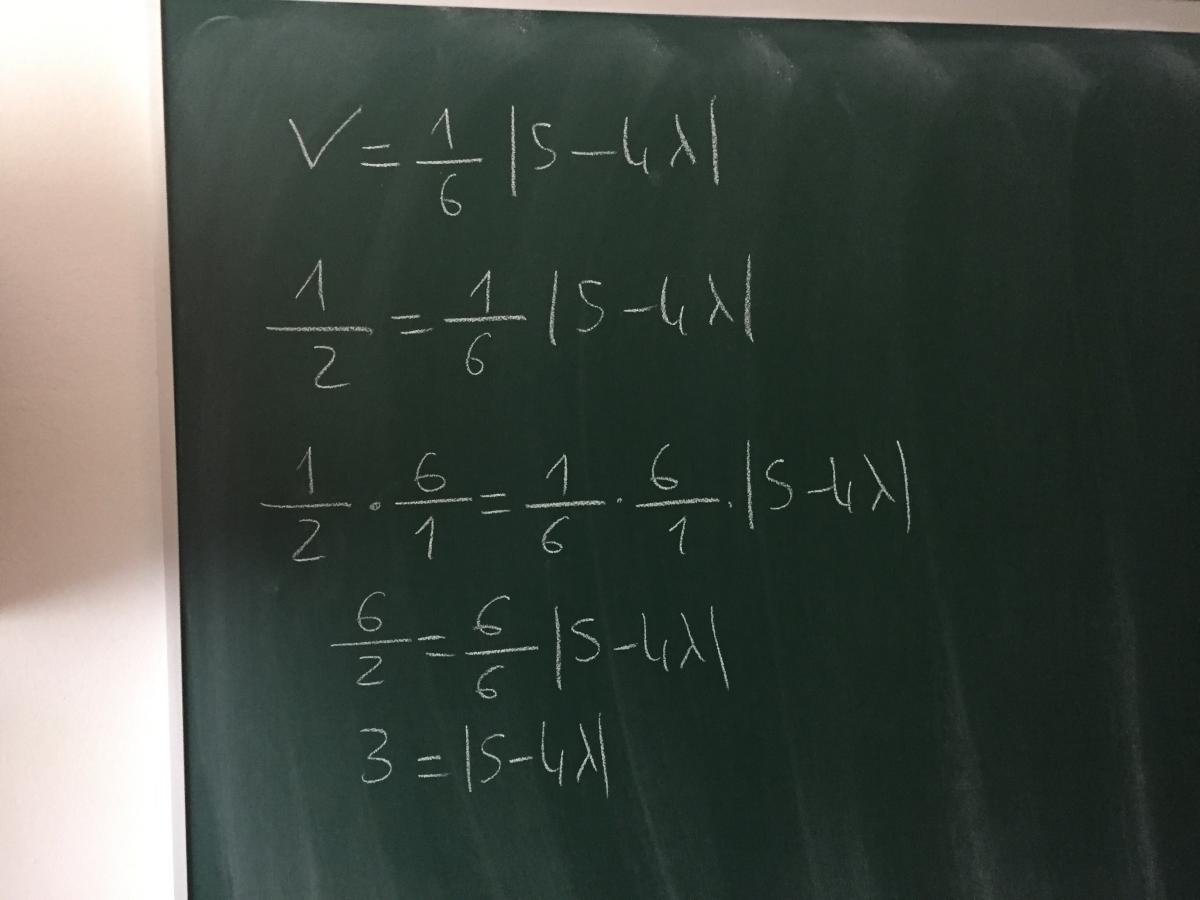 V = 1/6 |5 - 4λ|
1/2 = 1/6 |5 - 4λ|
1/2 · 6/1 = 1/6 · 6/1 · |5 - 4λ|
6/2 = 6/6 |5 - 4λ|
3 = |5 - 4λ|